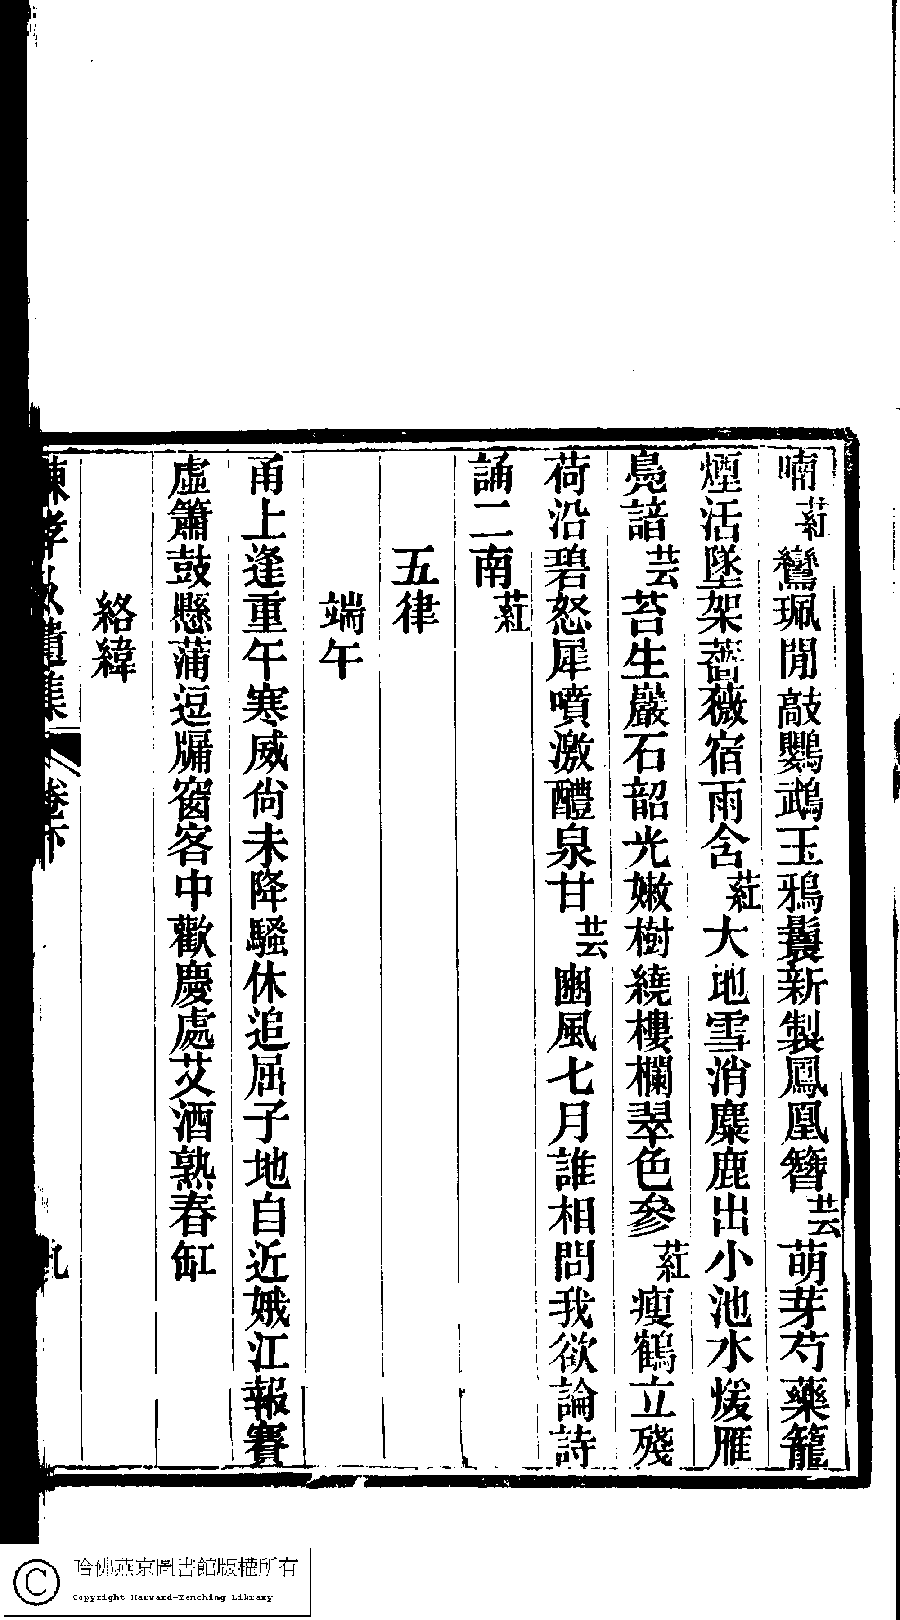 喃葒鸞珮閒敲鸚鵡玉鴉鬟新製鳳凰簪芸萌芽芍藥籠
煙活墜架薔薇宿雨含葒大地雪消麋鹿出小池水煖雁
鳧諳芸苔生巖石韶光嫩樹繞樓欄翠色參葒瘦鶴立殘
荷沿碧怒犀噴激醴泉甘芸豳風七月誰相問我欲論詩
誦二南葒
五律
端午
甬上逢重午寒威尙未降騷休追屈子地自近娥江報賽
虛簫鼓懸蒲逗牖窗客中歡慶處艾酒熟春缸
絡緯
遺集 卷下 九
哈佛燕京圖書館版權所有
Copyright Harvard-Yenching Library